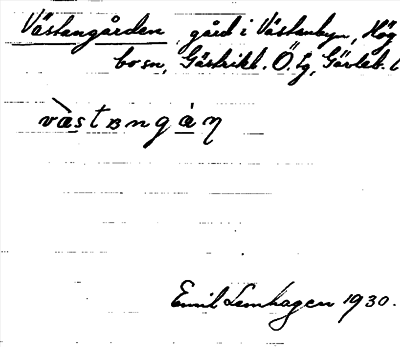 Västangården, gård i Västanbyn, Hög
bosn, Gästrikl. Ö. Tg, Gävleb. l
västangån
Emil Lemhagen 1930.